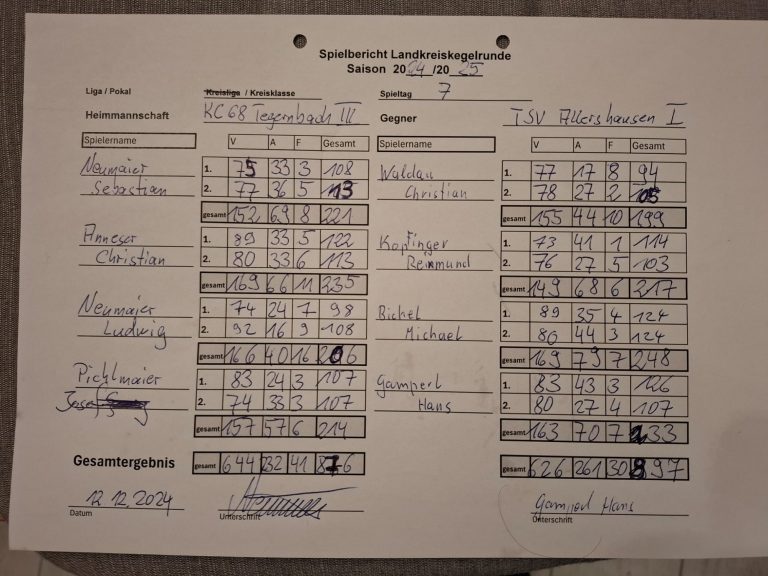 Spielbericht Landkreiskegelrunde
Saison 2024 /2025
Liga / Pokal Kreisliga / Kreisklasse Spieltag 7
Heimmannschaft KC 68 Tegernbach III Gegner TSV Allershausen I
Spielername V A F Gesamt Spielername V A F Gesamt
Neumaier 1. 75 33 3 108 Waldau 1. 77 17 8 94
Sebastian 2. 77 36 5 113 Christian 2. 78 27 2 105
gesamt 152 69 8 221 gesamt 155 44 10 199
Anneser 1. 89 33 5 122 Kopfinger 1. 73 41 1 114
Christian 2. 80 33 6 113 Reinmund 2. 76 27 5 103
gesamt 169 66 11 235 gesamt 149 68 6 217
Neumaier 1. 74 24 7 98 Bichel 1. 89 35 4 124
Ludwig 2. 92 16 9 108 Michael 2. 80 44 3 124
gesamt 166 40 16 206 gesamt 169 79 7 248
Pichlmaier 1. 83 24 3 107 Gamperl 1. 83 43 3 126
Josef 2. 74 33 3 107 Hans 2. 80 27 4 107
gesamt 157 57 6 214 gesamt 163 70 7 233
Gesamtergebnis gesamt 644 232 41 876 gesamt 626 261 30 897
12.12.2024 Gamperl Hans
Datum Unterschrift Unterschrift